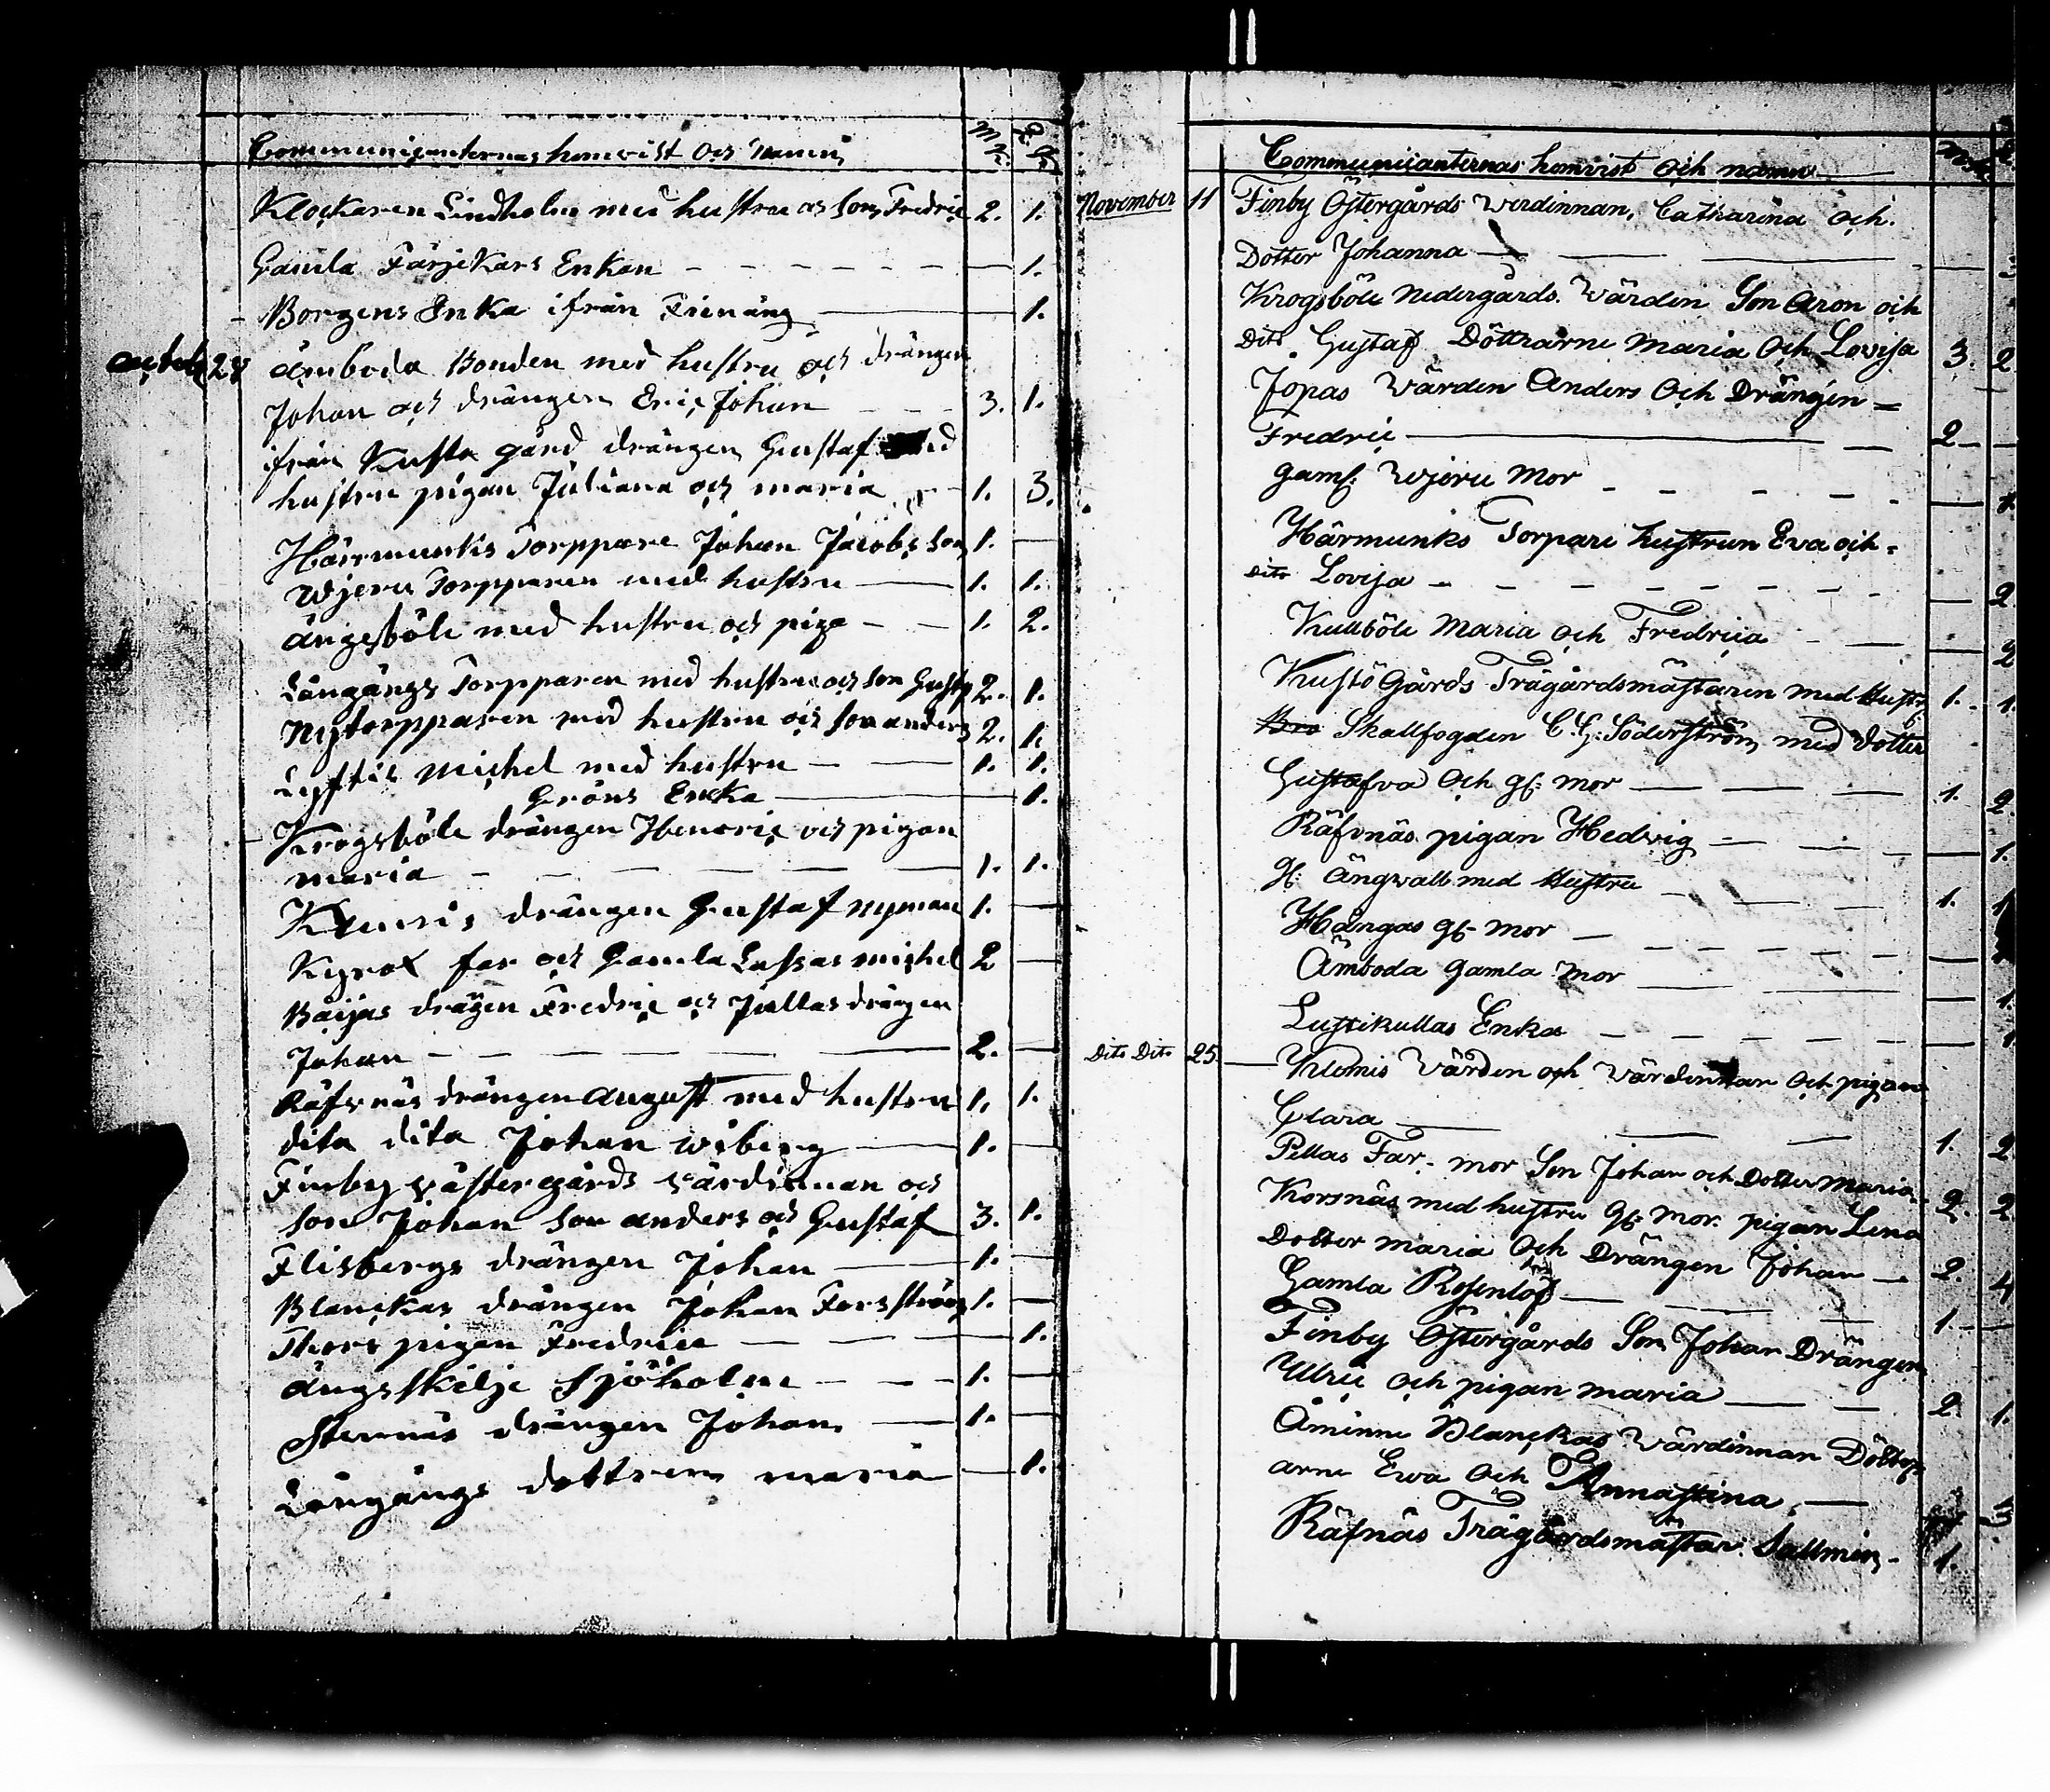 Communicanternas hemvist och namn M.K. Q.K.
Klockaren Lindholm med hustru och Son Fredric 2. 1.
Gamla Färjekars Enkan - - - - - - 1.
Borgens Enka ifrån Frienäng 1.
octob 28 Åmboda Bonden med hustru och drängen
Johan och drängen Eric Johan - - - 3. 1.
ifrån Kusto gård drängen Gustaf med
hustru pigan Juliana och maria 1. 3.
Härmunkis Torppare Johan Jacobs Son 1.
Wjeru Torpparen med hustru 1. 1.
ängesböle med hustru och piga - - 1. 2.
Långängs Torpparen med hustru och Son Gustf 2. 1.
Nytorpparen med hustru och Son anders 2. 1.
Lyftis Michel med hustru - 1. 1.
Gröns Enka 1.
Krogsböle drängen Henric och pigan
maria - - - - 1. 1.
drängen Gustaf nyman 1.
Kyrox far och Gamla Lassas michel 2
Baijas drägen Fredric och Jullas drängen
Johan - - - - 2.
Räfsnäs drängen August med hustru 1. 1.
dita dita Johan Wiberg 1.
Finby Västergårds värdinnan och
Son Johan Son anders och Gustaf 3. 1.
Flisbergs drängen Johan 1.
Blanckas drängen Johan Forsström 1.
Thors pigan Fredrica 1.
ängsskilje Sjöholm - - - 1.
Sternäs drängen Johan 1.
Långängs dottren maria 1.
Communicanternas hemvist och namn
November 11 Finby Östergårds Werdinnan, Catharina och
Dotter Johanna
Krogsböle Nedergårds Wärden Son Aron och
Dito Gustaf Döttrarne Maria Och Lovisa 3. 2
Jopas Wärden Anders Och Drängen =
Fredric 2
gaml: Wjeru Mor - - - - -
Härmunks Torpare hustrun Eva och =
dito Lovisa - - - - - - 2
Kullböle Maria och Fredrica 2
Kustö Gårds Trägårdsmästaren med Hustr 1. 1.
Skallfogden C.G: Söderström med dotter
Gustafva Och gl: mor 1. 2.
Räfsnäs pigan Hedvig 1.
gl: Ängwall med Hustru 1. 1
Hångas gl: mor
Åmboda gamla mor 1.
Lustikullas Enka - - - - - - 1
Dito Dito 25 Klemis Värden och Värdinnan och pigan
Clara 1. 2
Pellas Far - mor Son Johan och Dotter Maria 2. 2
Korsnäs med hustru gl: mor pigan Lena
Dotter maria Och Drängen Johan 2. 4
Gamla Rosenlöf 1.
Finby Östergårds Son Johan Drängen
Ulric Och pigan maria 2. 1.
Åminne Blanckas Wärdinnan Döttr
arne Ewa Och Annastina 3
Räfnäs Trägårdsmästar Sallmén 1.